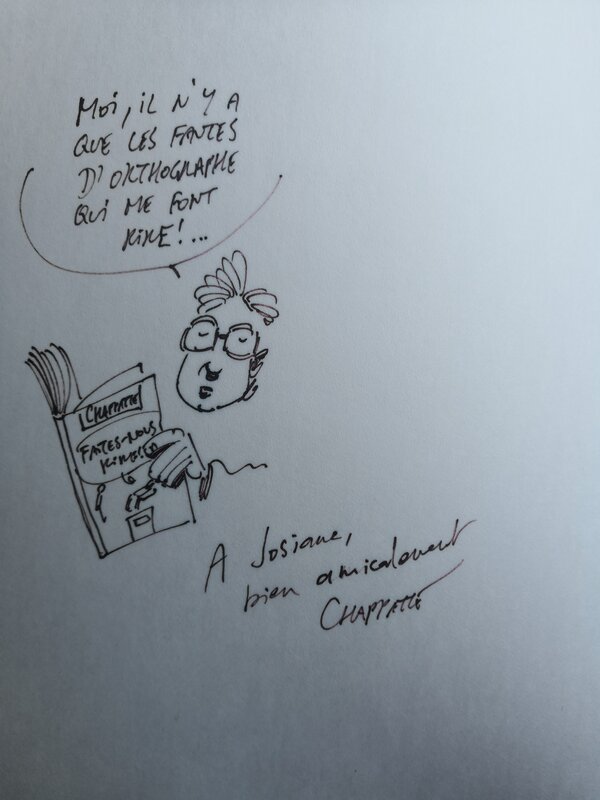 MOI, IL N'Y A
QUE LES FAUTES
D'ORTHOGRAPHE
QUI ME FONT
RIRE!...
CHAPPATTE
FAITES-NOUS
RIRE!
A Josiane,
bien amicalement
CHAPPATTE